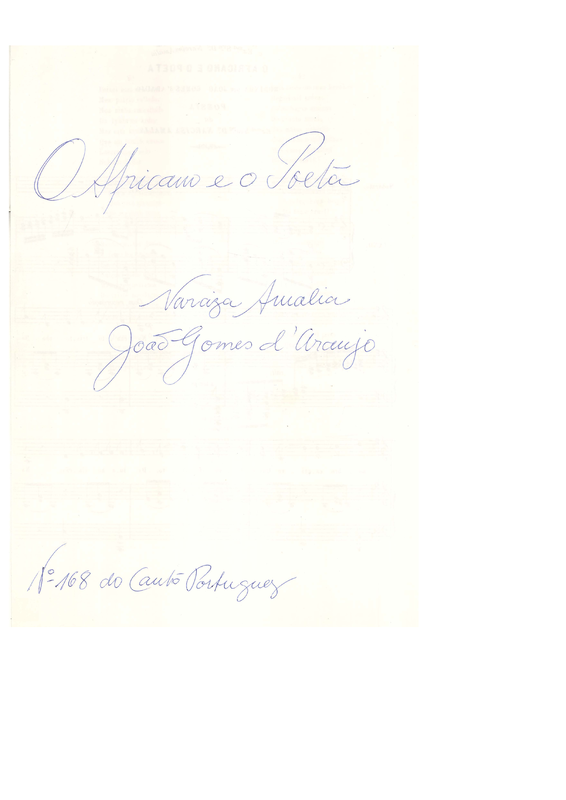 O Africano e o Poeta
Nariza Amalia
João Gomes d'Araujo
Nº 168 do Canto Portuguez